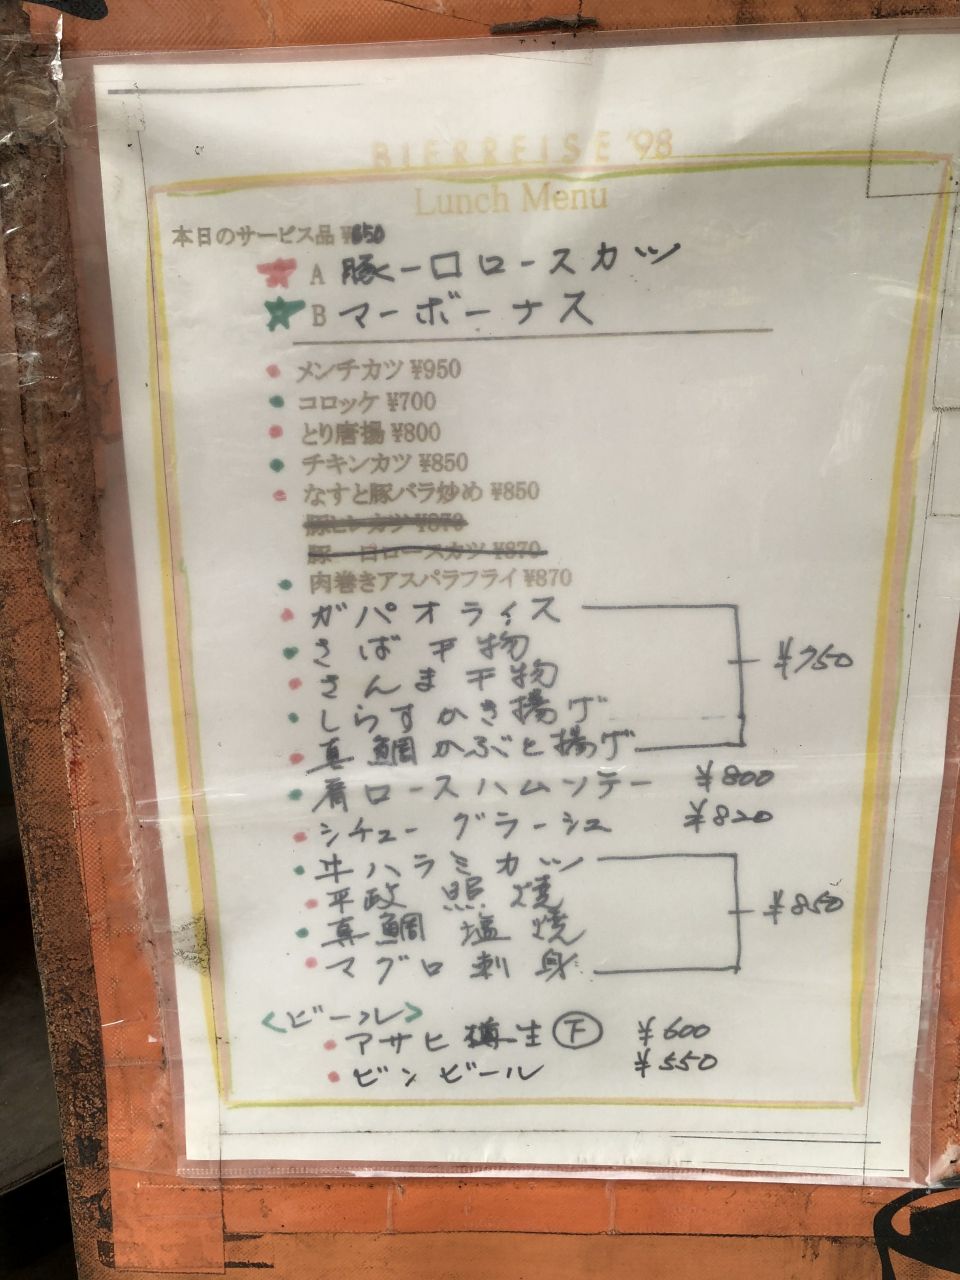 BIERREISE '98
Lunch Menu
本日のサービス品 ¥650
A 豚一口ロースカツ
B マーボーナス
メンチカツ ¥950
コロッケ ¥700
とり唐揚 ¥800
チキンカツ ¥850
なすと豚バラ炒め ¥850
豚ヒレカツ ¥870
豚一口ロースカツ ¥870
肉巻きアスパラフライ ¥870
ガパオライス
さば干物
さんま干物 ¥750
しらすかき揚げ
真鯛かぶと揚げ
肩ロースハムソテー ¥800
シチューグラーシュ ¥820
牛ハラミカツ
平政照焼 ¥850
真鯛塩焼
マグロ刺身
<ビール>
アサヒ樽生 下 ¥600
ビンビール ¥550